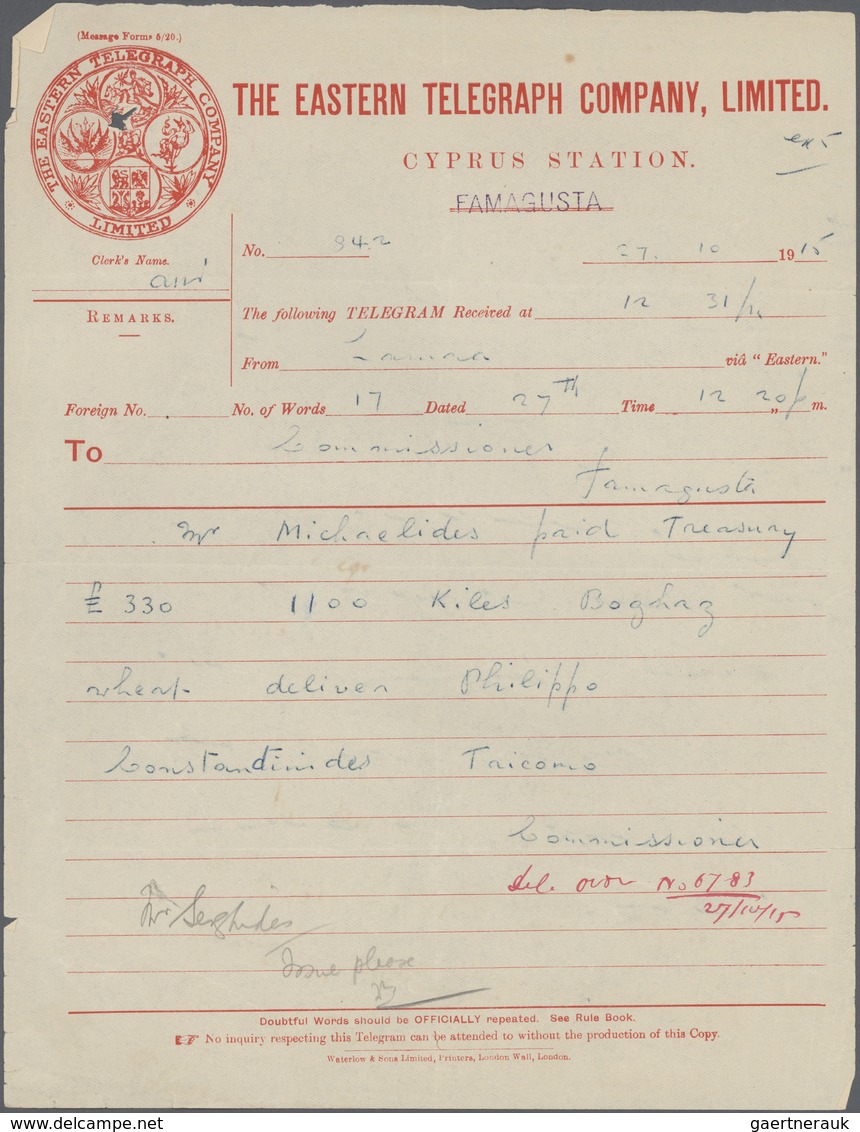 (Message Forms 5/20.)
THE EASTERN TELEGRAPH COMPANY
LIMITED
THE EASTERN TELEGRAPH COMPANY, LIMITED.
CYPRUS STATION.
FAMAGUSTA
Clerk's Name.
No. 842 27. 10 1915
REMARKS.
The following TELEGRAM Received at 12 31/
From Larnaca viâ "Eastern."
Foreign No. . No. of Words 17 Dated 27th Time 12 20 „ m.
To Commissioner
Famagusta
Mr Michaelides paid Treasury
£ 330 1100 Kiles Boghaz
wheat deliver Philippo
Constantinides Tricomo
Commissioner
No 6783
27/10/15
Mr Serghides
Issue please
Doubtful Words should be OFFICIALLY repeated. See Rule Book.
☛ No inquiry respecting this Telegram can be attended to without the production of this Copy.
Waterlow & Sons Limited, Printers, London Wall, London.
gaertnerauk